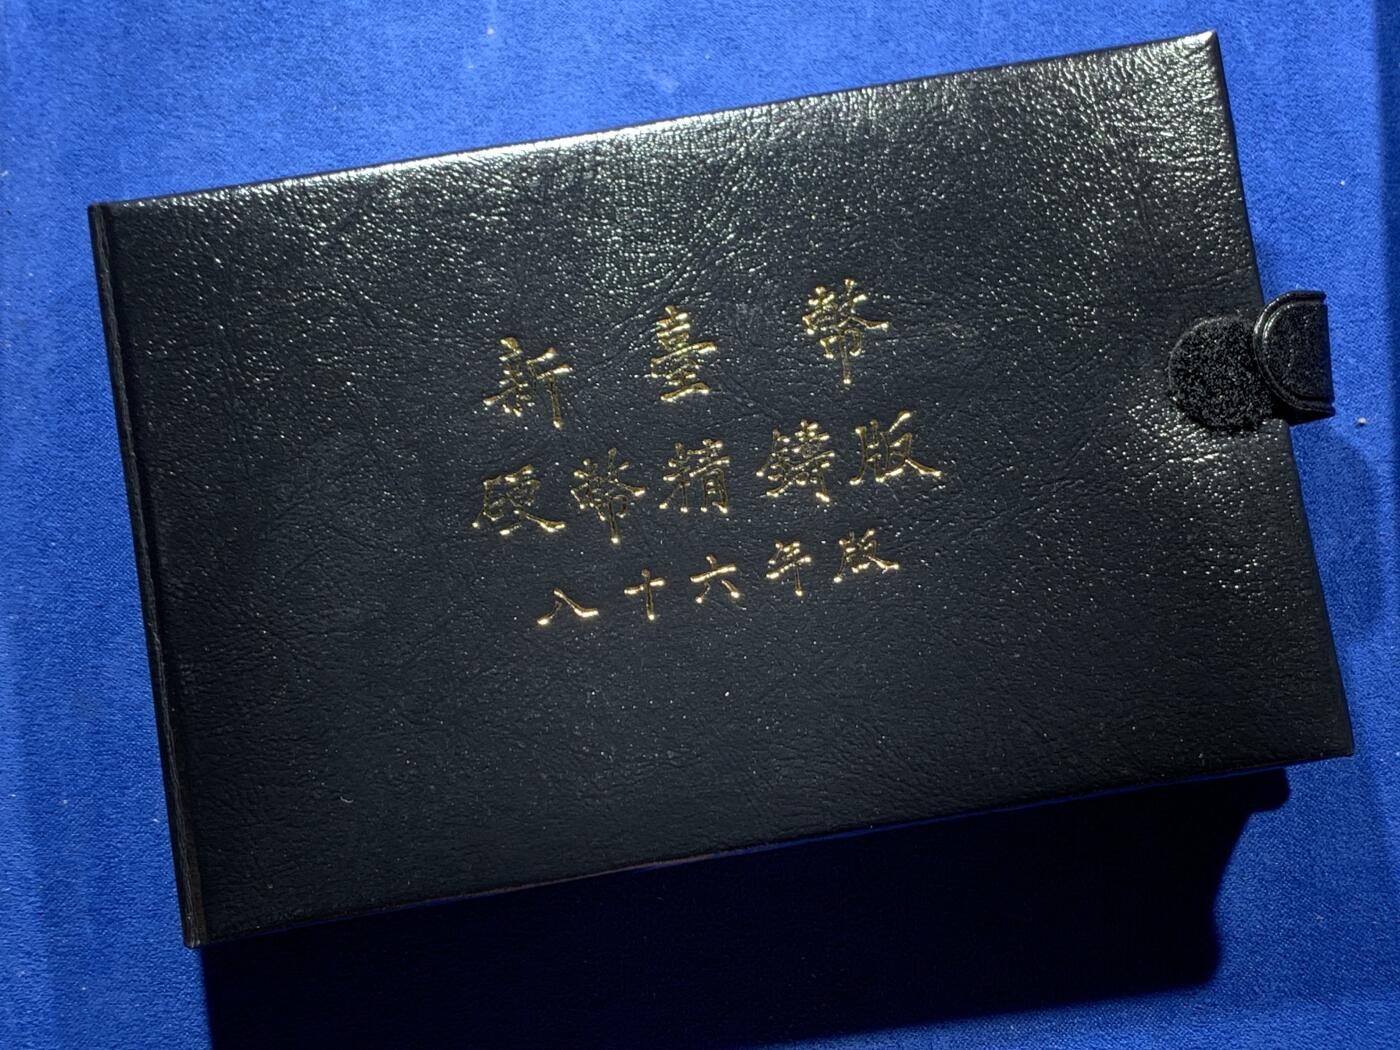 新臺幣
硬幣精鑄版
八十六年版